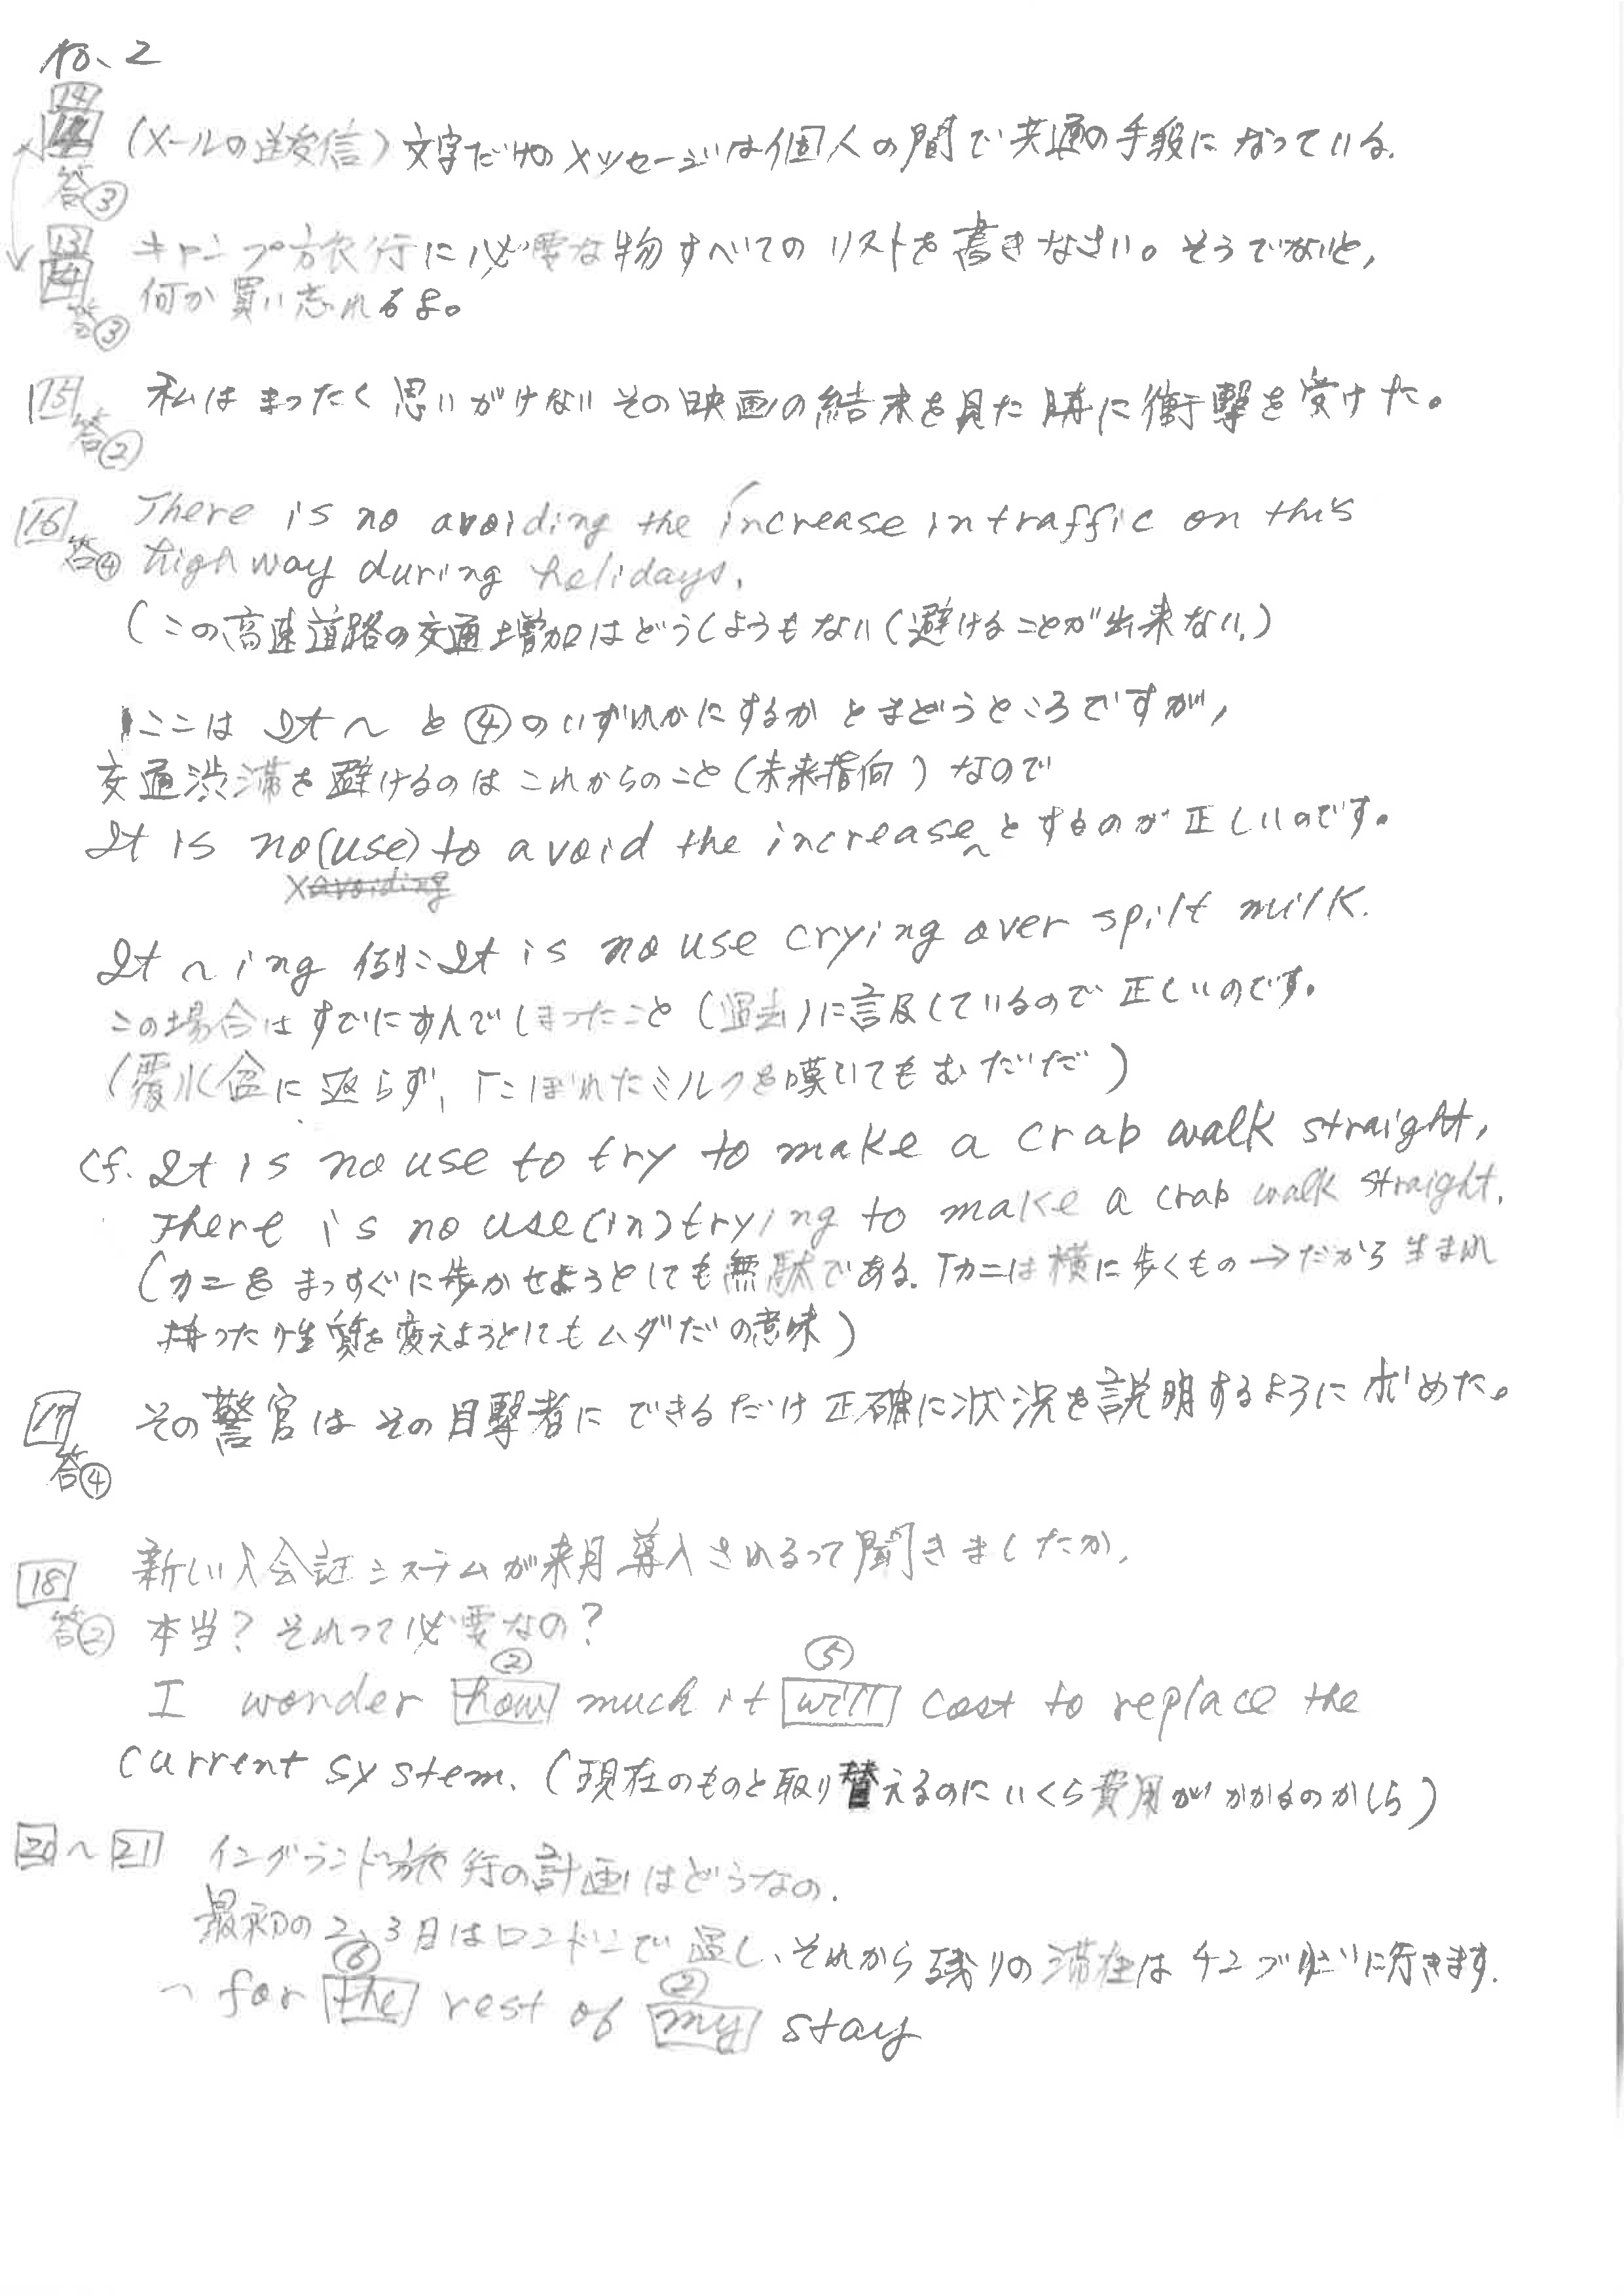 No. 2
14
答③
(メールの送受信) 文字だけのメッセージは個人の間で共通の手段になっている.
13
答③
キャンプ旅行に必要な物すべてのリストを書きなさい。そうでないと,
何か買い忘れるよ。
15
答②
私はまったく思いがけないその映画の結末を見た時に衝撃を受けた。
16
答④
There is no avoiding the increase in traffic on this
highway during holidays.
(この高速道路の交通増加はどうしようもない(避けることが出来ない.)
ここは It ~ と④のいずれかにするかとまどうところですが,
交通渋滞を避けるのはこれからのこと(未来指向)なので
It is no (use) to avoid the increase~とするのが正しいのです。
×avoiding
It ~ing 例: It is no use crying over spilt milk.
この場合はすでにすんでしまったこと(過去)に言及しているので正しいのです。
(覆水盆に返らず,「こぼれたミルクを嘆いてもむだだ)
Cf. It is no use to try to make a crab walk straight,
There is no use (in) trying to make a crab walk straight.
(カニをまっすぐに歩かせようとしても無駄である.「カニは横に歩くもの→だから生まれ
持った性質を変えようとしてもムダだの意味)
17
答④
その警官はその目撃者にできるだけ正確に状況を説明するように求めた。
18
答②
新しい入会証システムが来月導入されるって聞きましたか.
本当? それって必要なの?
② ⑤
I wonder how much it will cost to replace the
current system. (現在のものと取り替えるのにいくら費用がかかるのかしら)
20~21 イングランド旅行の計画はどうなの.
最初の2,3日はロンドンで過し、それから残りの滞在はケンブリッジに行きます.
⑥ ②
~ for the rest of my stay